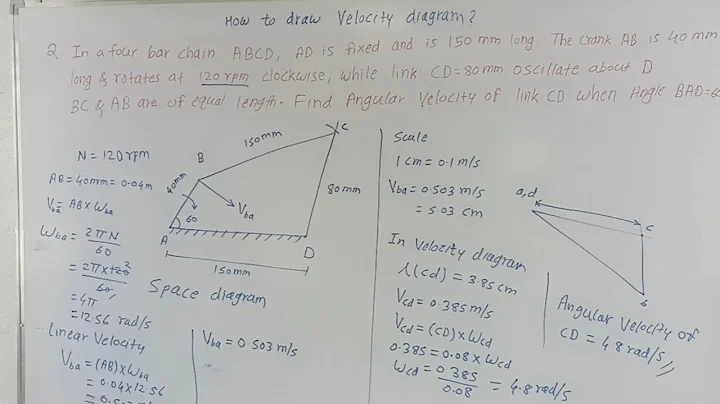 How to draw Velocity diagram?
Q In a four bar chain ABCD, AD is fixed and is 150 mm long The crank AB is 40 mm
long & rotates at 120 rpm clockwise, while link CD=80mm oscillate about D
BC & AB are of equal length. Find Angular Velocity of link CD when Angle BAD=6
N = 120 rpm
AB = 40mm = 0.04m
Vba = AB x Wba
Wba = 2πN
60
= 2πx120 2
60
= 4π
= 12.56 rad/s
Linear Velocity
Vba = (AB) x Wba
= 0.04x12.56
150mm
C
B
40mm
80mm
Vba
60
A
D
150mm
Space diagram
Vba = 0.503 m/s
Scale
1 cm = 0.1 m/s
Vba = 0.503 m/s
= 5.03 cm
In Velocity diagram
l(cd) = 3.85 cm
Vcd = 0.385 m/s
Vcd = (CD) x Wcd
0.385 = 0.08 x Wcd
Wcd = 0.385 = 4.8 rad/s
0.08
a,d
c
b
Angular Velocity of
CD = 4.8 rad/s